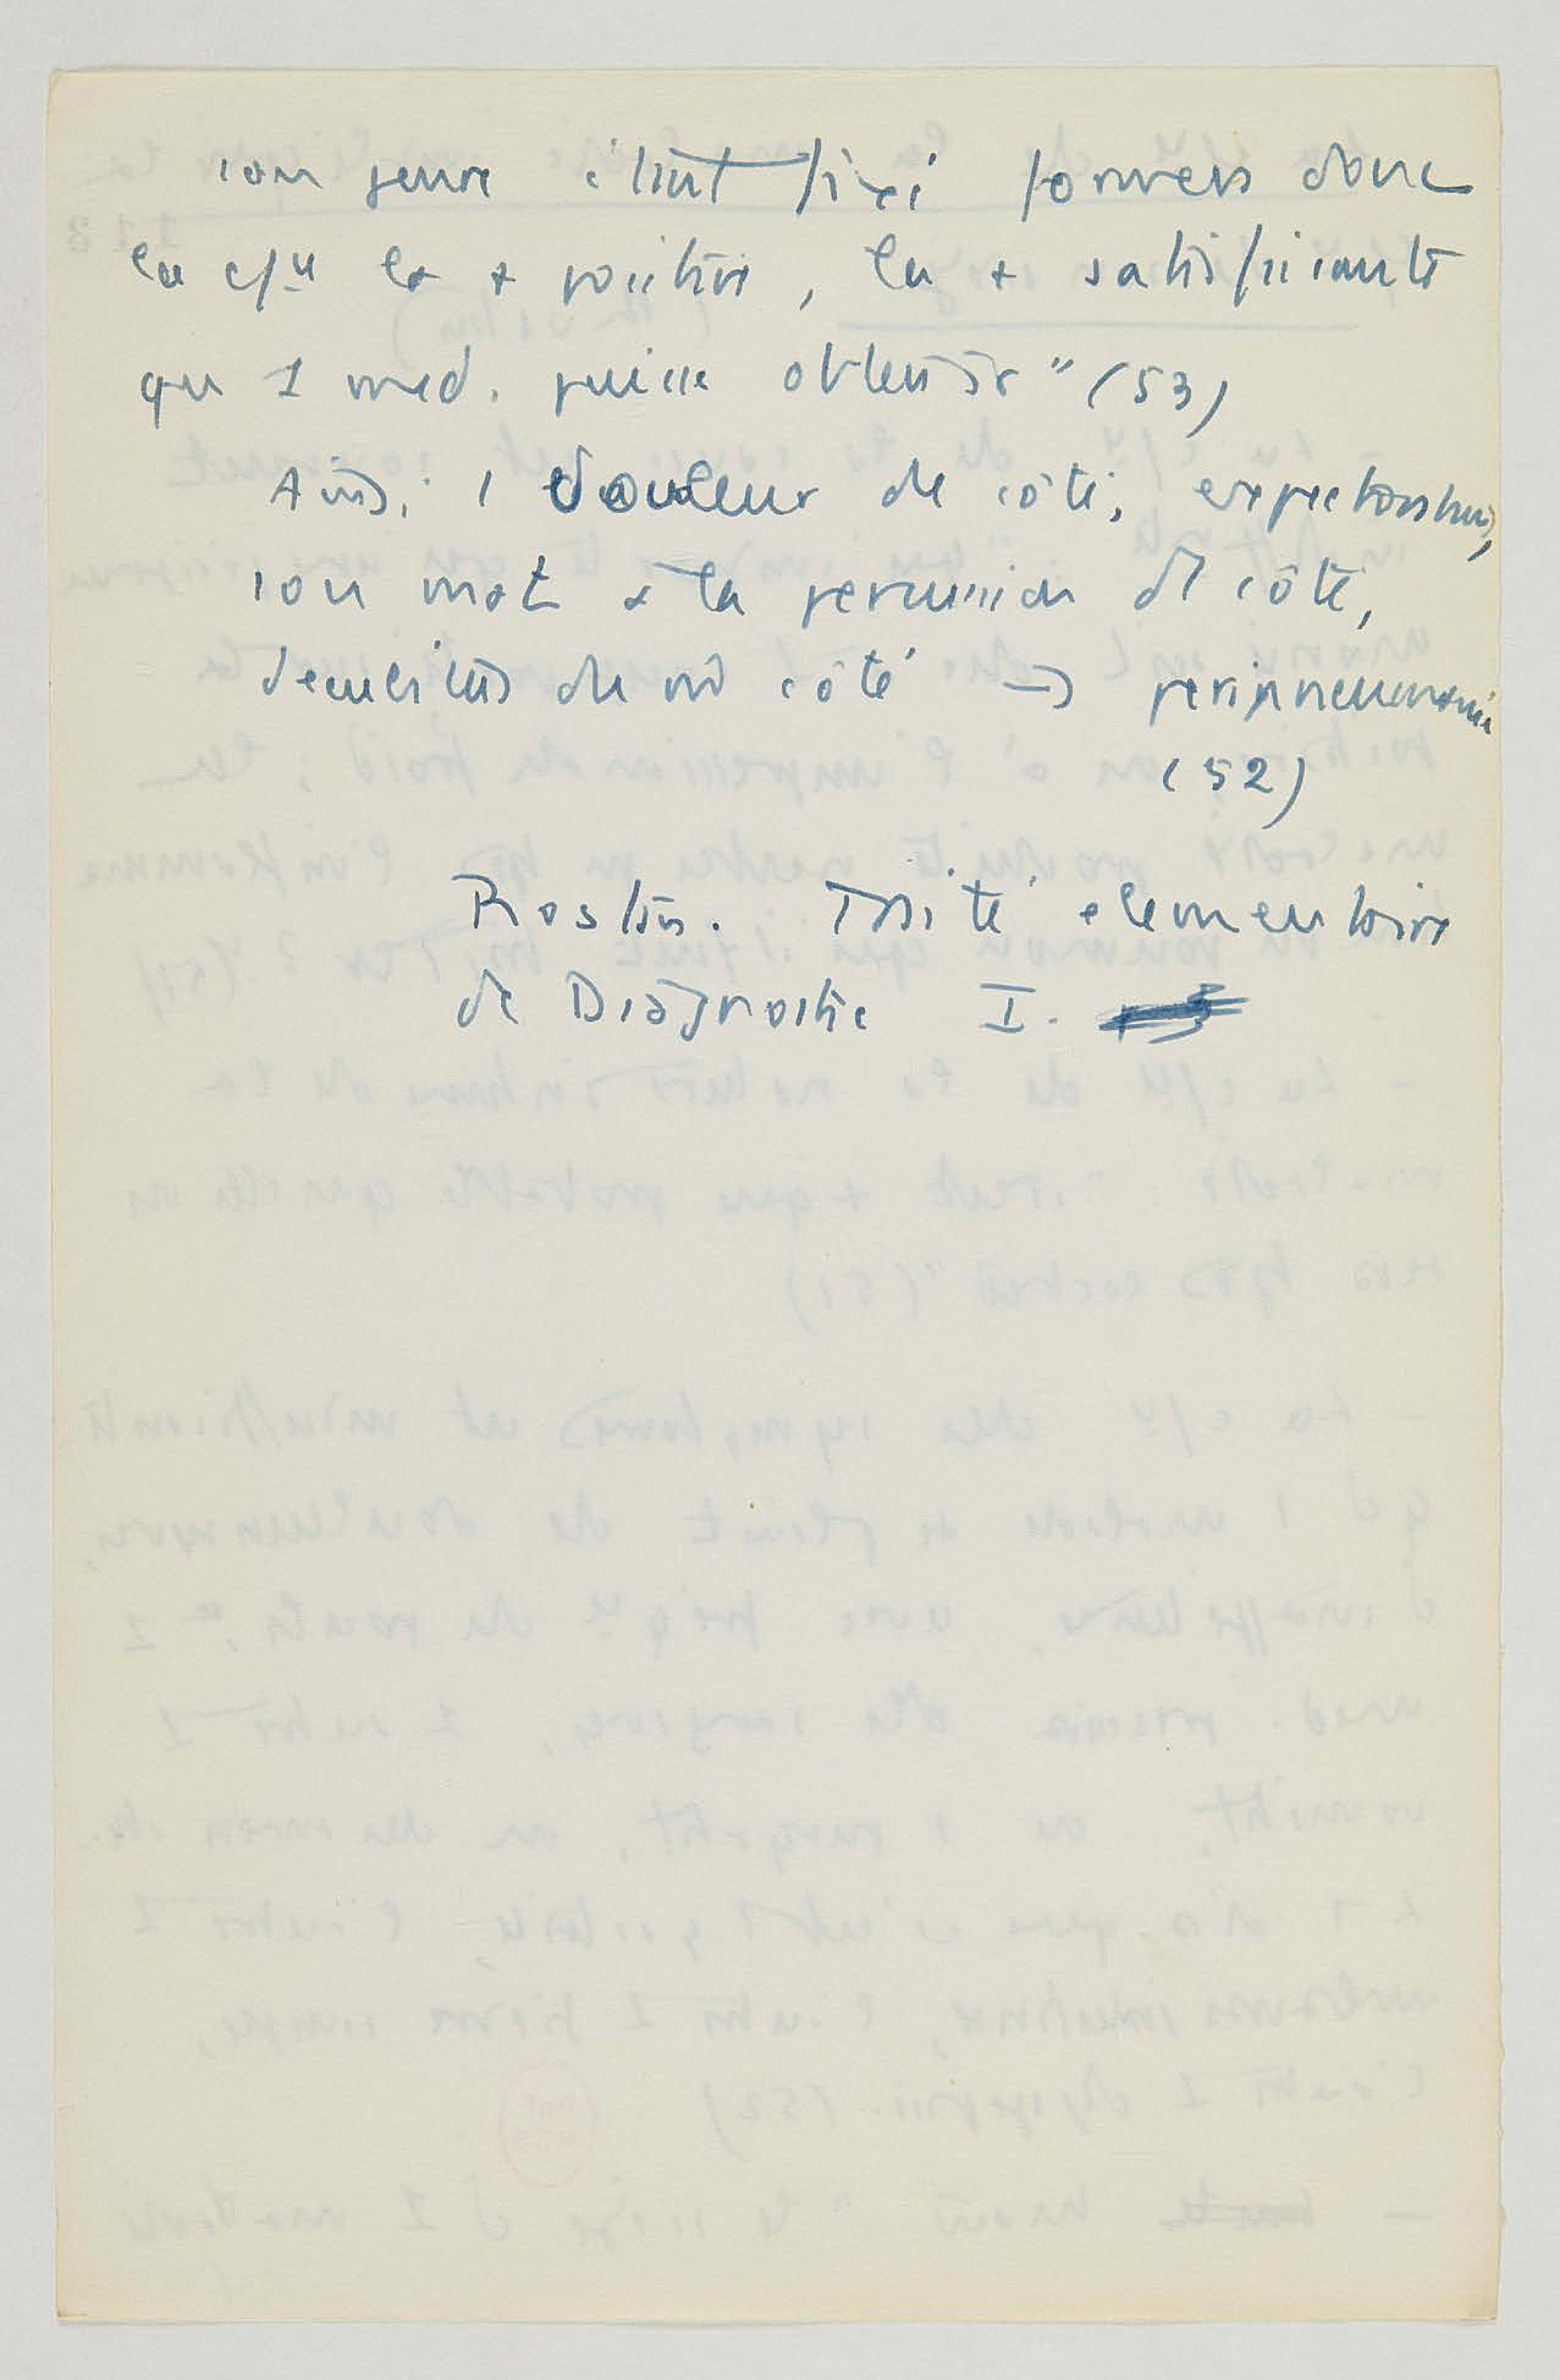 son genre étant fixé formera donc
la c/ce la + positive, la + satisfaisante
qu 1 med. puisse obtenir" (53)
Ainsi 1 douleur de côté, expectoration,
son mat à la percussion du côté,
decubitus du m̂ côté → peripneumonie
(52)
Rostan. Traité elementaire
de Diagnostic I.